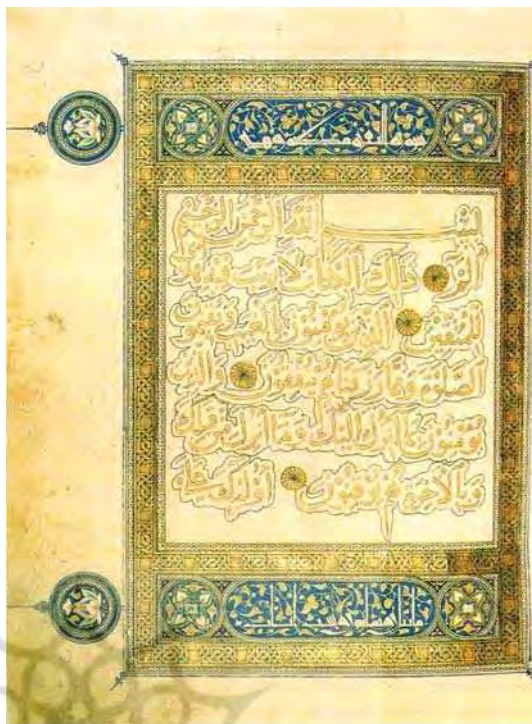 بسم الله الرحمن الرحيم
الم ذلك الكتاب لا ريب فيه هدى
للمتقين الذين يؤمنون بالغيب ويقيمون
الصلوة ومما رزقناهم ينفقون والذين
يؤمنون بما أنزل إليك وما أنزل من قبلك
وبالآخرة هم يوقنون أولئك على